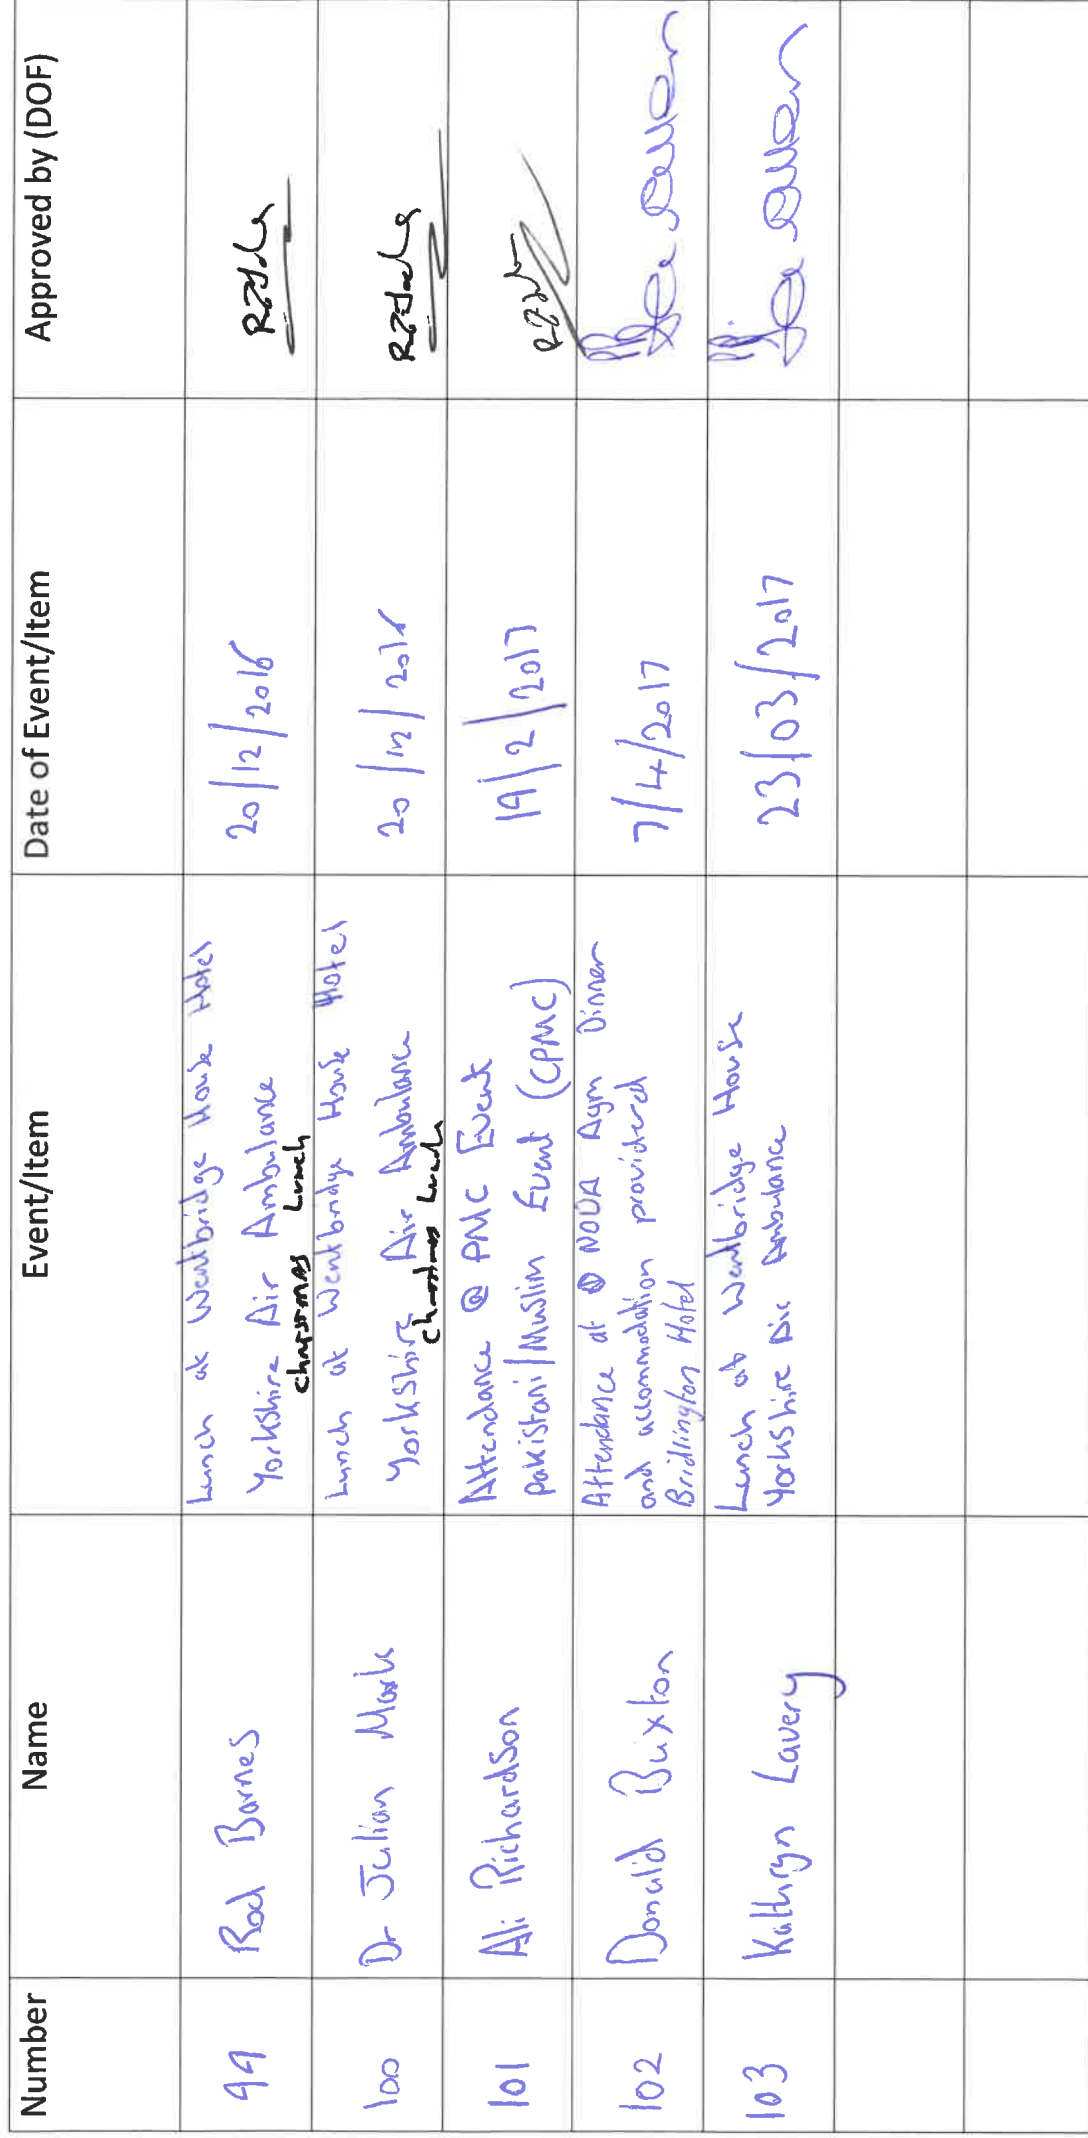 Number Name Event/Item Date of Event/Item Approved by (DOF)
99 Rod Barnes Lunch at Wentbridge House Hotel 20/12/2016
Yorkshire Air Ambulance
Christmas Lunch
100 Dr Julian Mark Lunch at Wentbridge House Hotel 20/12/2016
Yorkshire Air Ambulance
Christmas Lunch
101 Ali Richardson Attendance @ PMC Event 19/2/2017
Pakistani/Muslim Event (CPMC)
102 Donald Buxton Attendance at NOUA Agm Dinner 7/4/2017
and accommodation providered
Bridlington Hotel
103 Kathryn Lavery Lunch at Wentbridge House 23/03/2017
Yorkshire Air Ambulance